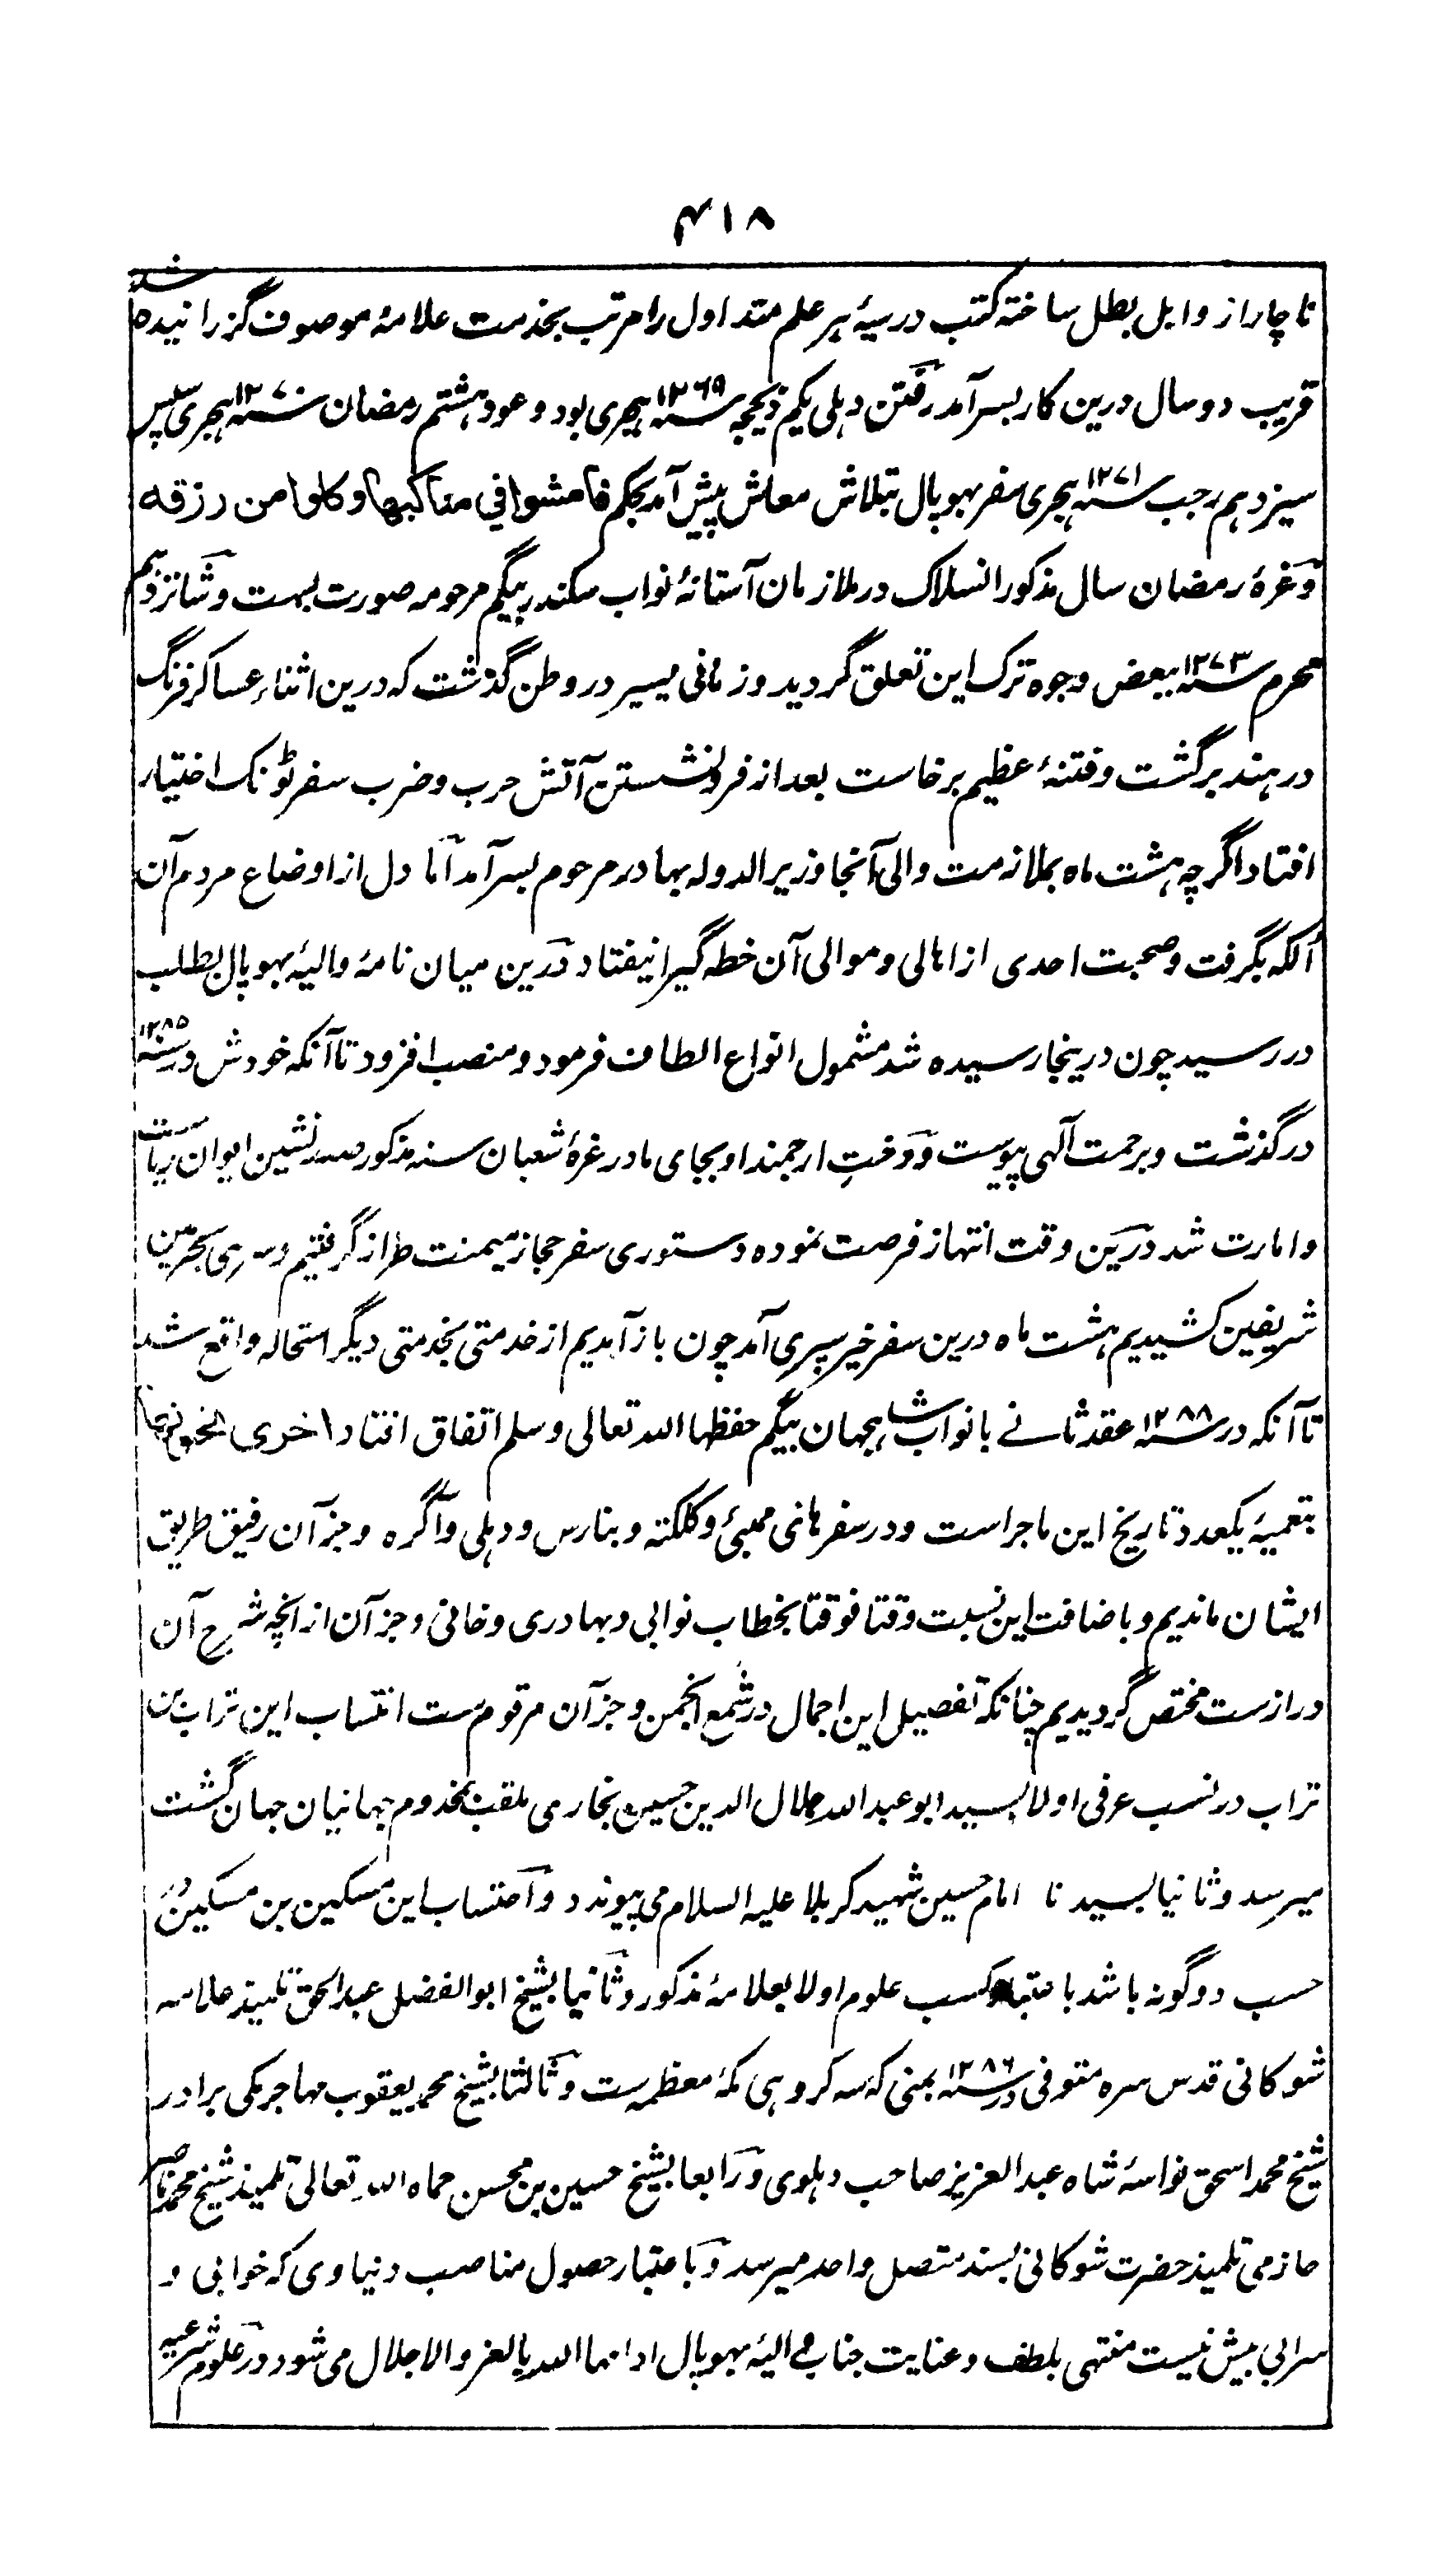 ۴۱۸
ناچار از وابل بطل ساخته کتب درسیهٔ هر علم متداول را مرتب بخدمت علامهٔ موصوف گزرانیده شد
قریب دو سال درین کار بسر آمد رفتن دہلی یکم ذیحجہ ۱۲۶۹سنہ ہجری بود و عود ہشتم رمضان ۱۲۷۰سنہ ہجری سپس
سیزدہم رجب ۱۲۷۱سنہ ہجری سفر بہوپال بتلاش معاش پیش آمد بحکم فامشوا في مناكبها وكلوا من رزقه
و غرهٔ رمضان سال مذکور انسلاک در ملازمان آستانهٔ نواب سکندر بیگم مرحومہ صورت بست و شانزدہم
محرم ۱۲۷۳سنہ ببعض وجوہ ترک این تعلق گردید و زمانی یسیر در وطن گذشت کہ درین اثناء عساکر فرنگ
در ہند برگشت و فتنهٔ عظیم برخاست بعد از فرونشستن آتش حرب و ضرب سفر ٹونک اختیار
افتاد اگرچہ ہشت ماہ بملازمت والی آنجا وزیر الدولہ بہادر مرحوم بسر آمد اما دل از اوضاع مردم آن
اُلکہ بگرفت و صحبت احدی از اہالی و موالی آن خطہ گیرا نیفتاد درین میان نامهٔ والیهٔ بہوپال بطلب
در رسید چون درینجا رسیدہ شد مشمول انواع الطاف فرمود و منصب افزود تا آنکہ خودش در ۱۲۸۵سنہ
درگذشت و برحمت آلہی پیوست و دختِ ارجمند او بجای مادر غرهٔ شعبان سنہ مذکور صدرنشین ایوان ریاست
و امارت شد درین وقت انتہاز فرصت نمودہ دستوری سفر حجاز میمنت طراز گرفتیم و سری بحرمین
شریفین کشیدیم ہشت ماہ درین سفر خیر سپری آمد چون باز آمدیم از خدمتی بخدمتی دیگر استحالہ واقع شد
تا آنکہ در ۱۲۸۸سنہ عقد ثانے با نواب شاہجہان بیگم حفظها الله تعالی و سلم اتفاق افتاد اخری تحبونها
بتعمیهٔ یکعدد تاریخ این ماجراست و در سفرہائی ممبئی و کلکتہ و بنارس و دہلی و آگرہ و جز آن رفیق طریق
ایشان ماندیم و باضافت این نسبت وقتا فوقتا بخطاب نوابی و بہادری و خانی و جز آن از انچہ شرح آن
درازست مختص گردیدیم چنانکہ تفصیل این اجمال در شمع انجمن و جز آن مرقوم ست انتساب این تراب بن
تراب در نسب عرفی اولا بسید ابو عبد اللہ جلال الدین حسین بخاری ملقب بمخدوم جہانیان جہان گشت
میرسد و ثانیا بسیدنا امام حسین شہید کربلا علیہ السلام می پیوندد و احتساب این مسکین بن مسکین در
حسب دوگونہ باشد باعتبار کسب علوم اولا بعلامهٔ مذکور و ثانیا بشیخ ابو الفضل عبد الحق تلمیذ علامہ
شوکانی قدس سرہ متوفی در ۱۲۸۶سنہ بمنی کہ سہ کروہی مکهٔ معظمہ ست و ثالثا بشیخ محمد یعقوب مہاجر مکی برادر
شیخ محمد اسحق نواسهٔ شاہ عبد العزیز صاحب دہلوی و رابعا بشیخ حسین بن محسن حماہ اللہ تعالی تلمیذ شیخ محمد ناصر
حازمی تلمیذ حضرت شوکانی بسند متصل واحد میرسد و باعتبار حصول مناصب دنیاوی کہ خوابی و
سرابی بیش نیست منتہی بلطف و عنایت جناب والیهٔ بہوپال ادامہا اللہ بالعز والاجلال می شود در علوم شرعیہ